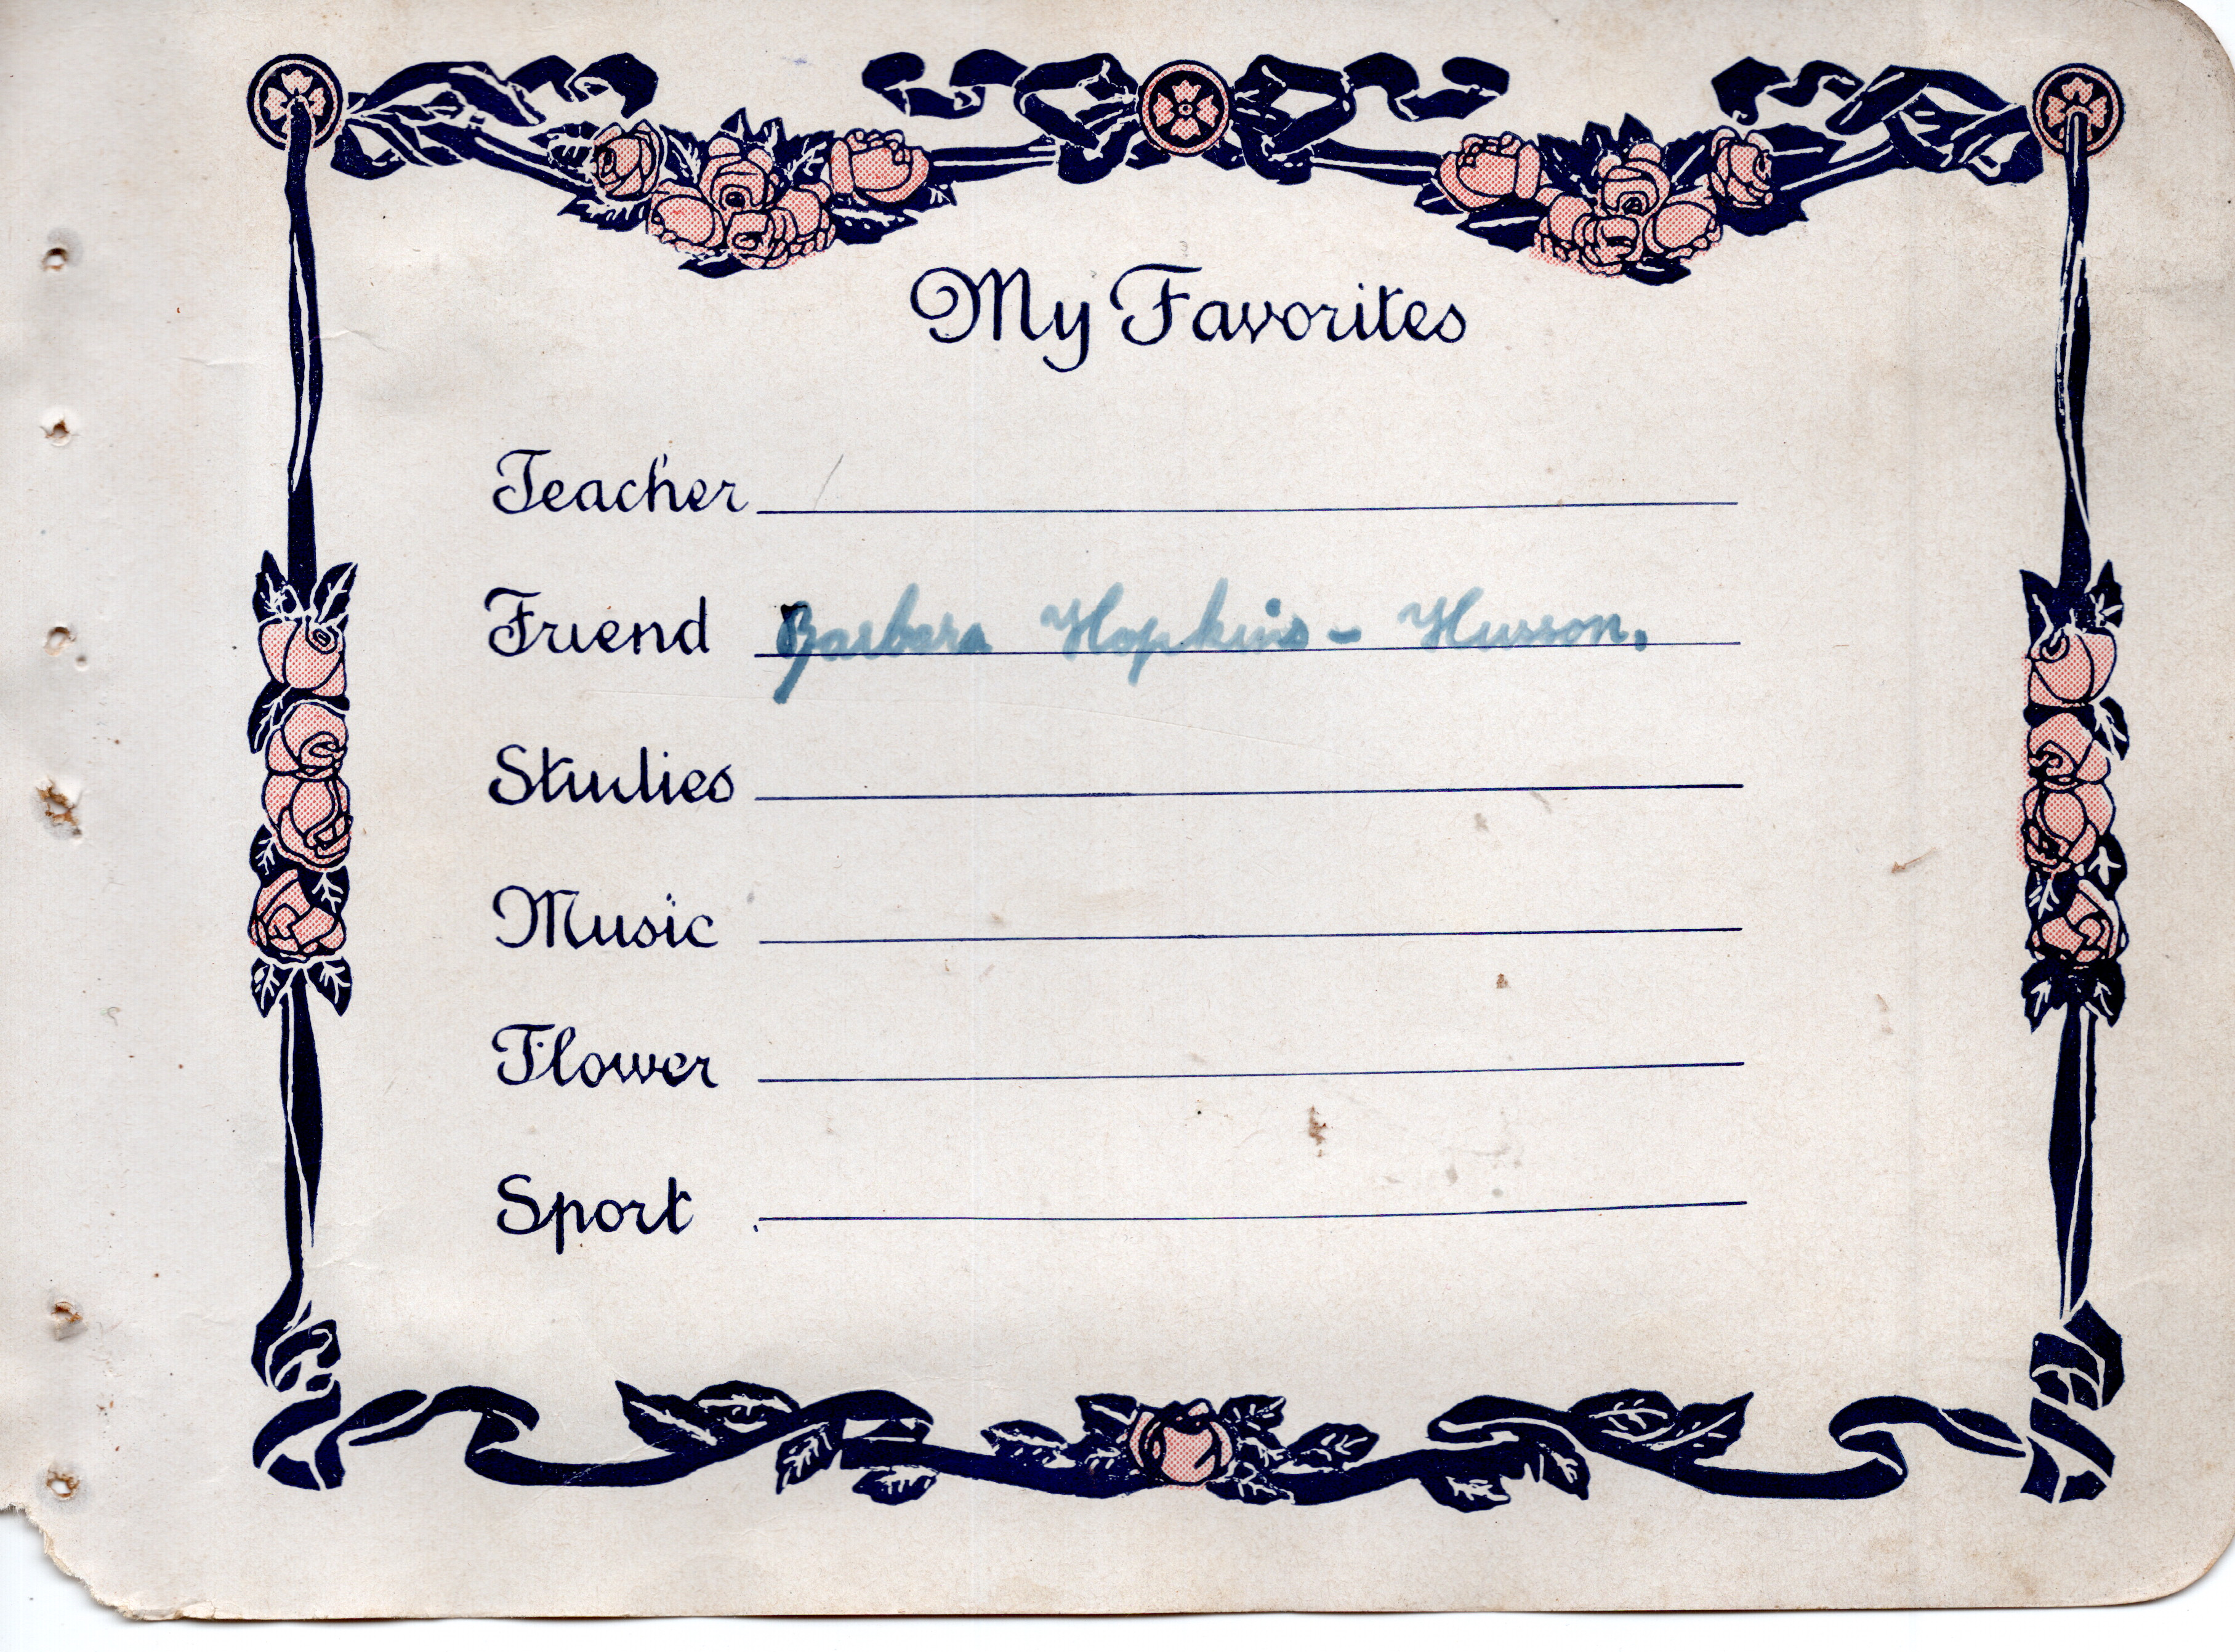 My Favorites
Teacher
Friend Barbara Hopkins - Husson.
Studies
Music
Flower
Sport